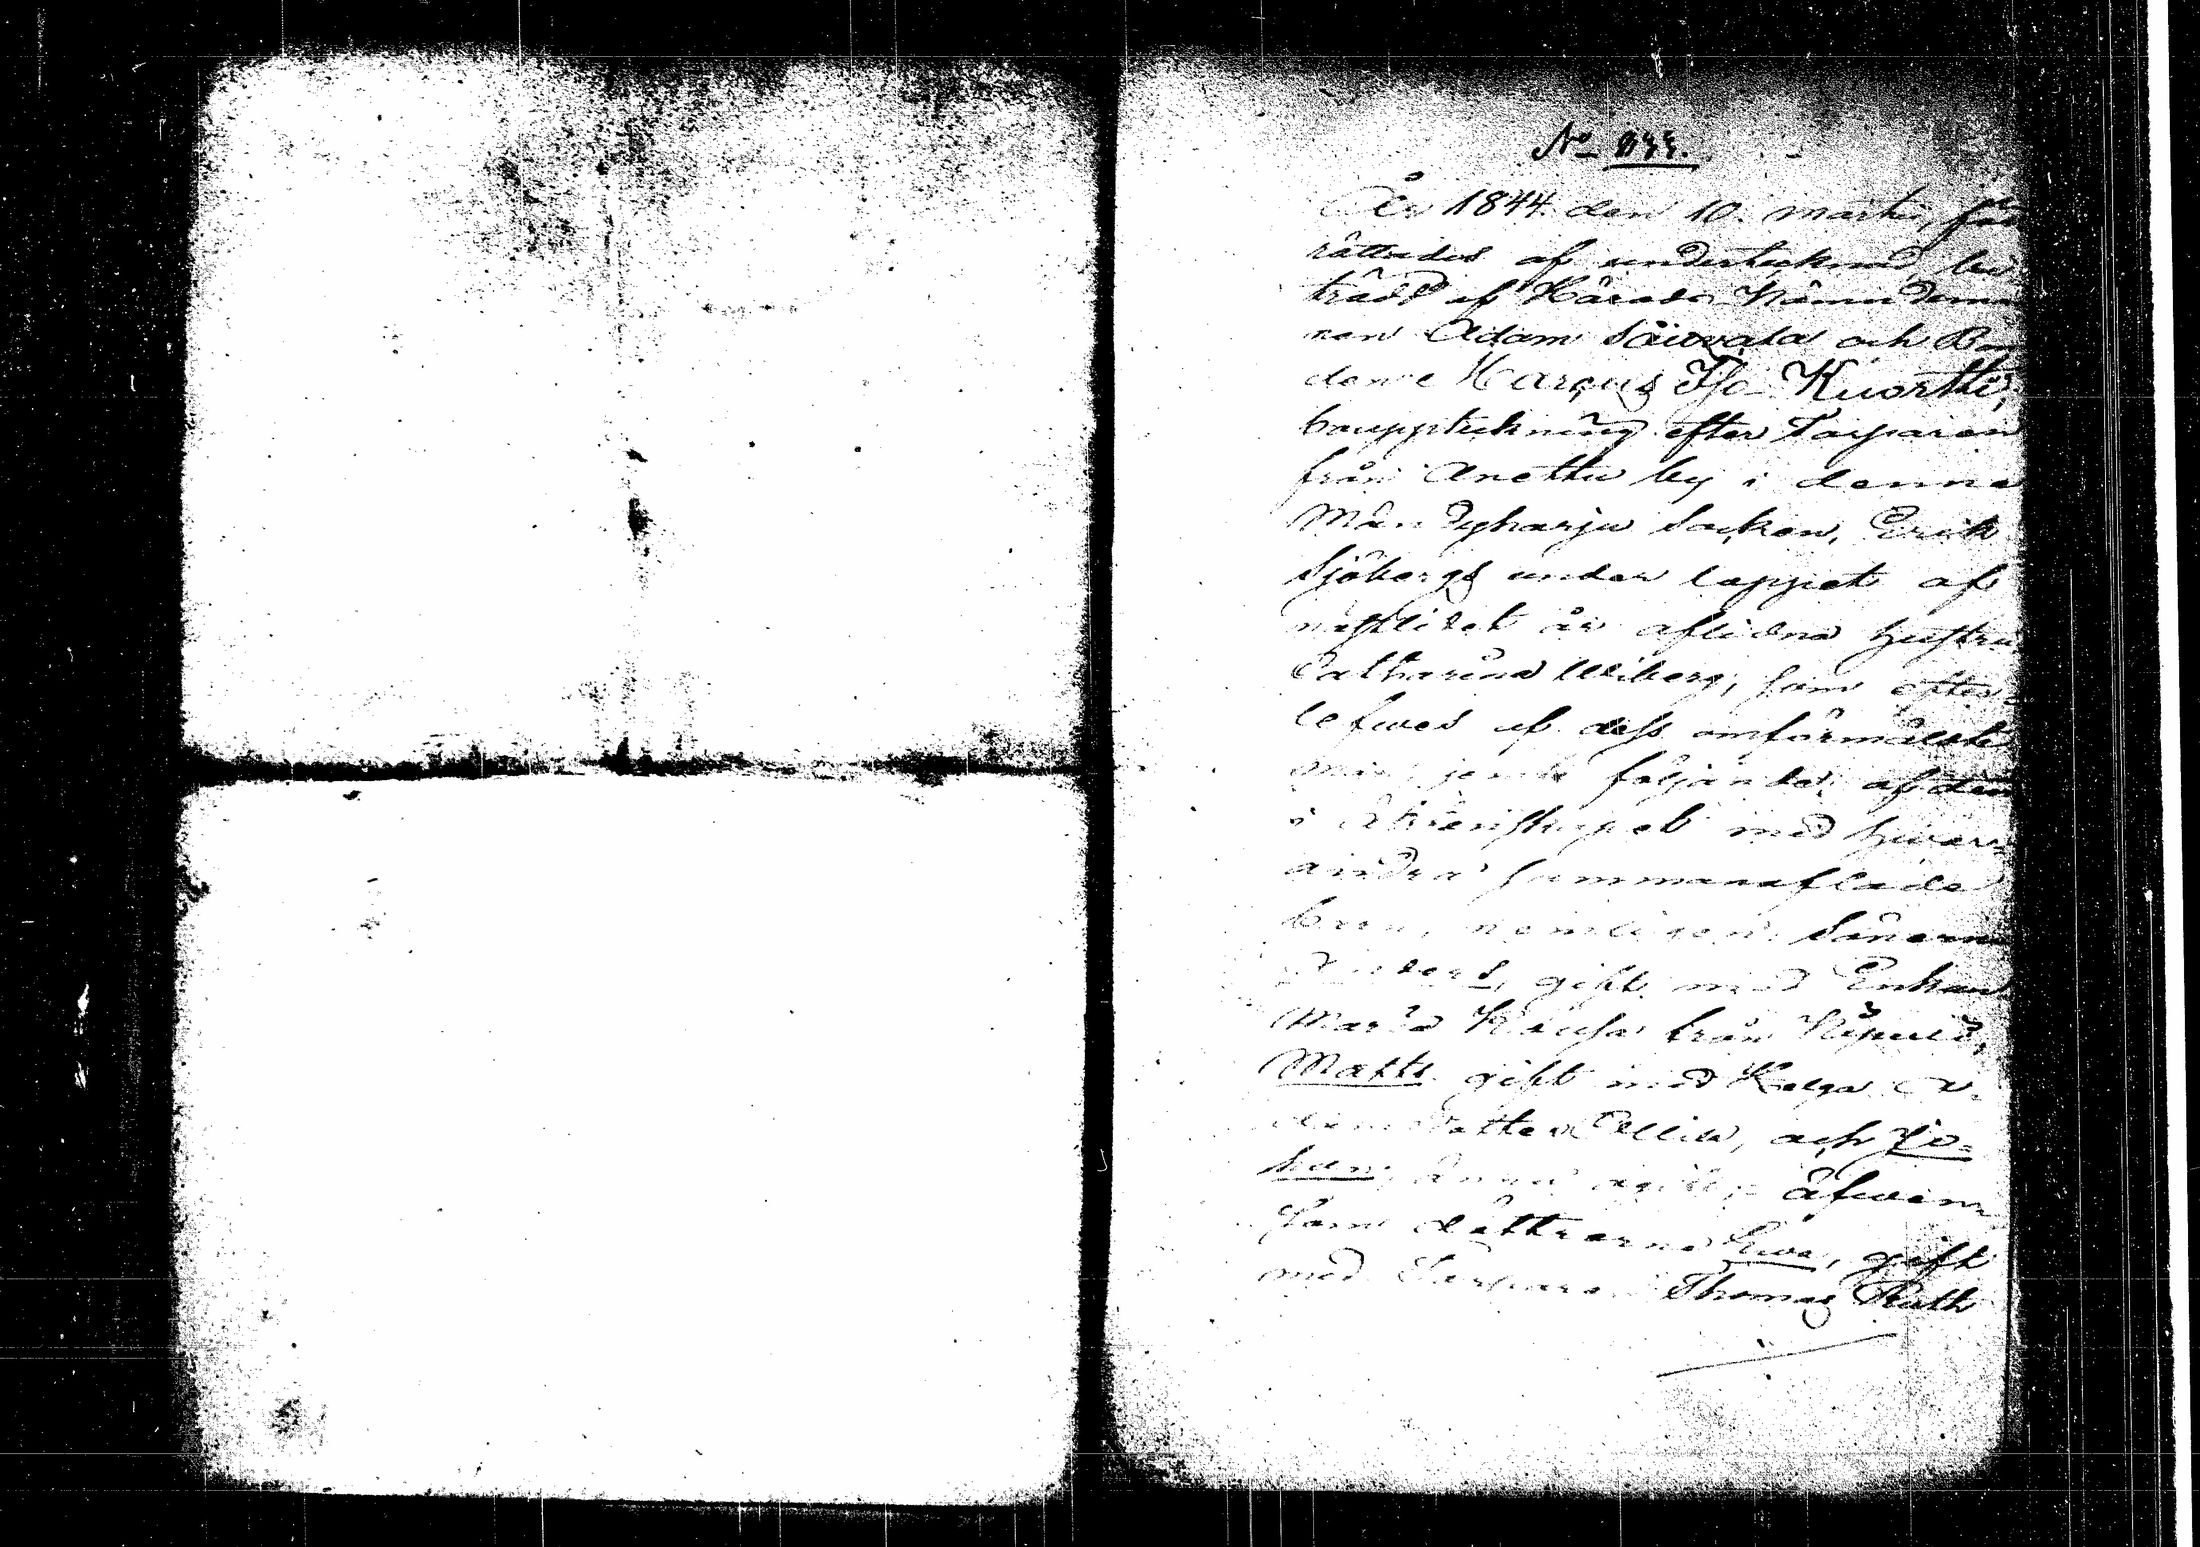 No
År 1844 den 10. martii, för
rättades af undertecknad, bi
trädd af Härads Nämndeman
nen Adam Säiwälä och Bon
den Marcus Iso-Kuortti,
bouppteckning efter Torparen
från Anottu by i denna
Mändyharju Socken, Erik
Sjöbergs under loppet af
nästlidet år aflidna hustru
Catharina Wiberg, som efter=
lefwes af dess omförmälte
man, jemte följande, af dem
i äktenskapet med hwar=
andra sammanaflade
barn, nemligen: Sönerne
Anders, gift med Enkan
Maria från
Matts gift med Helga A=
damsdotter och Jo=
han, ännu ogift, äfwen=
som döttrarna Ewa, gift
med Torparen Thomas Ruth